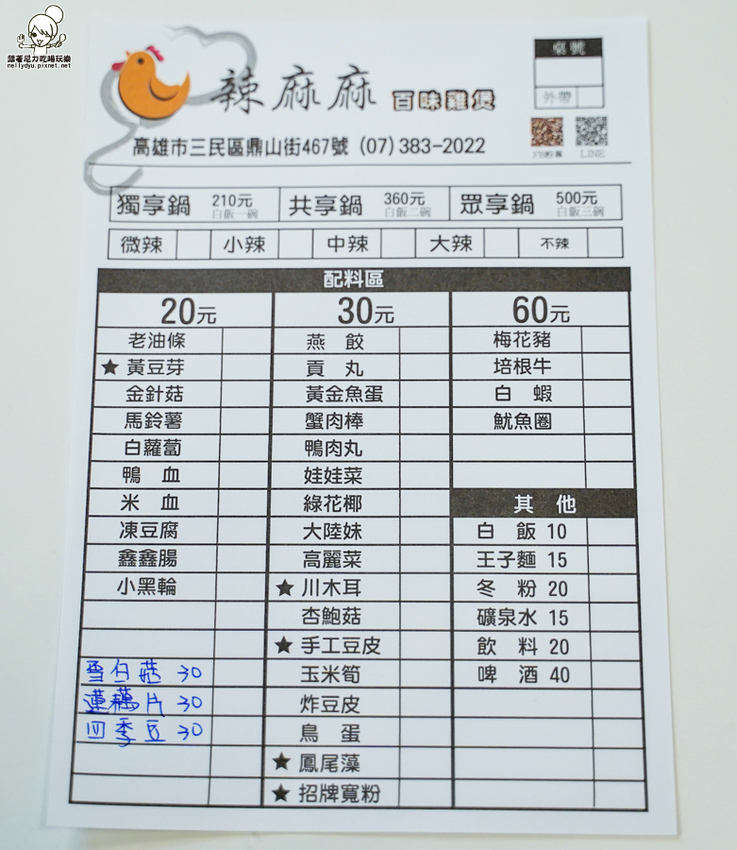 跟著尼力吃喝玩樂
nellydyu.pixnet.net
辣麻麻 百味雞煲
桌號
外帶
FB粉專 LINE
高雄市三民區鼎山街467號 (07)383-2022
獨享鍋 210元 白飯一碗 共享鍋 360元 白飯二碗 眾享鍋 500元 白飯三碗
微辣 小辣 中辣 大辣 不辣
配料區
20元 30元 60元
老油條 燕餃 梅花豬
★黃豆芽 貢丸 培根牛
金針菇 黃金魚蛋 白蝦
馬鈴薯 蟹肉棒 魷魚圈
白蘿蔔 鴨肉丸
鴨血 娃娃菜
米血 綠花椰 其他
凍豆腐 大陸妹 白飯 10
鑫鑫腸 高麗菜 王子麵 15
小黑輪 ★川木耳 冬粉 20
杏鮑菇 礦泉水 15
★手工豆皮 飲料 20
雪白菇 30 玉米筍 啤酒 40
蓮藕片 30 炸豆皮
四季豆 30 鳥蛋
★鳳尾藻
★招牌寬粉